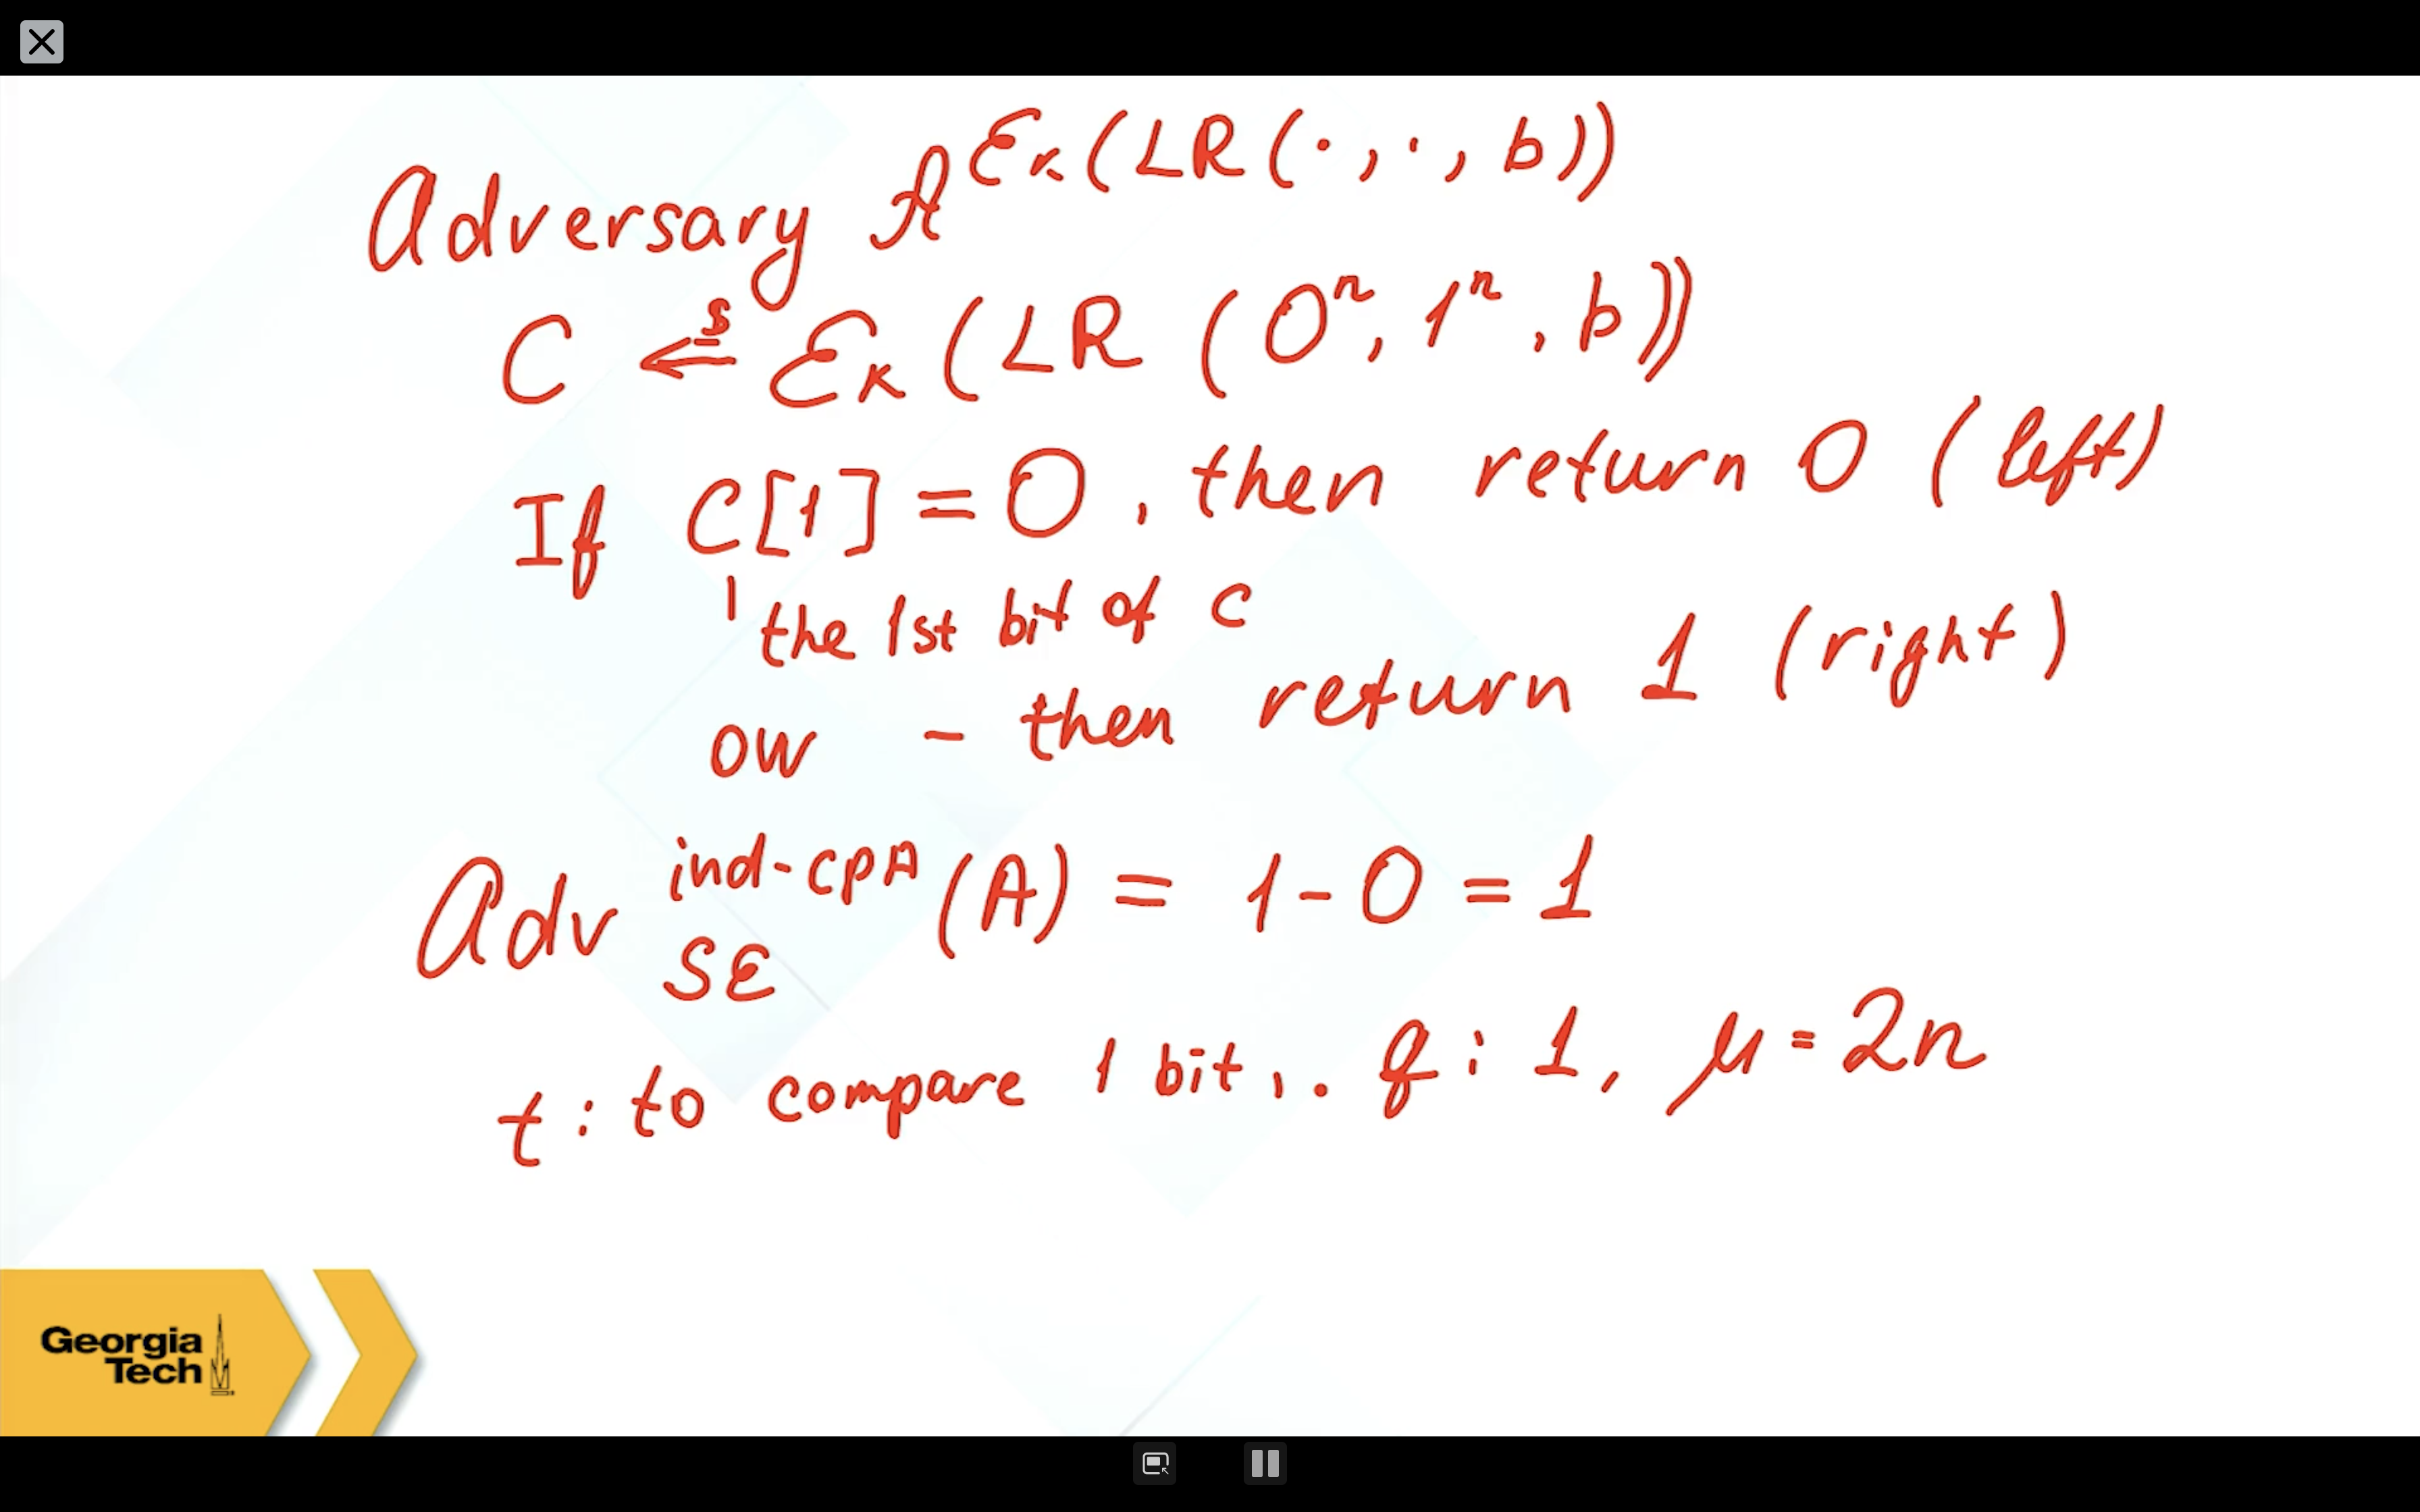 Adversary A^Eк(LR(·,·,b))
C ←$ Eк(LR(0ⁿ,1ⁿ,b))
If C[1]=0, then return 0 (left)
the 1st bit of C
OW - then return 1 (right)
Adv ind-cpA SE (A) = 1-0 = 1
t: to compare 1 bit,. q: 1, μ=2n
Georgia
Tech